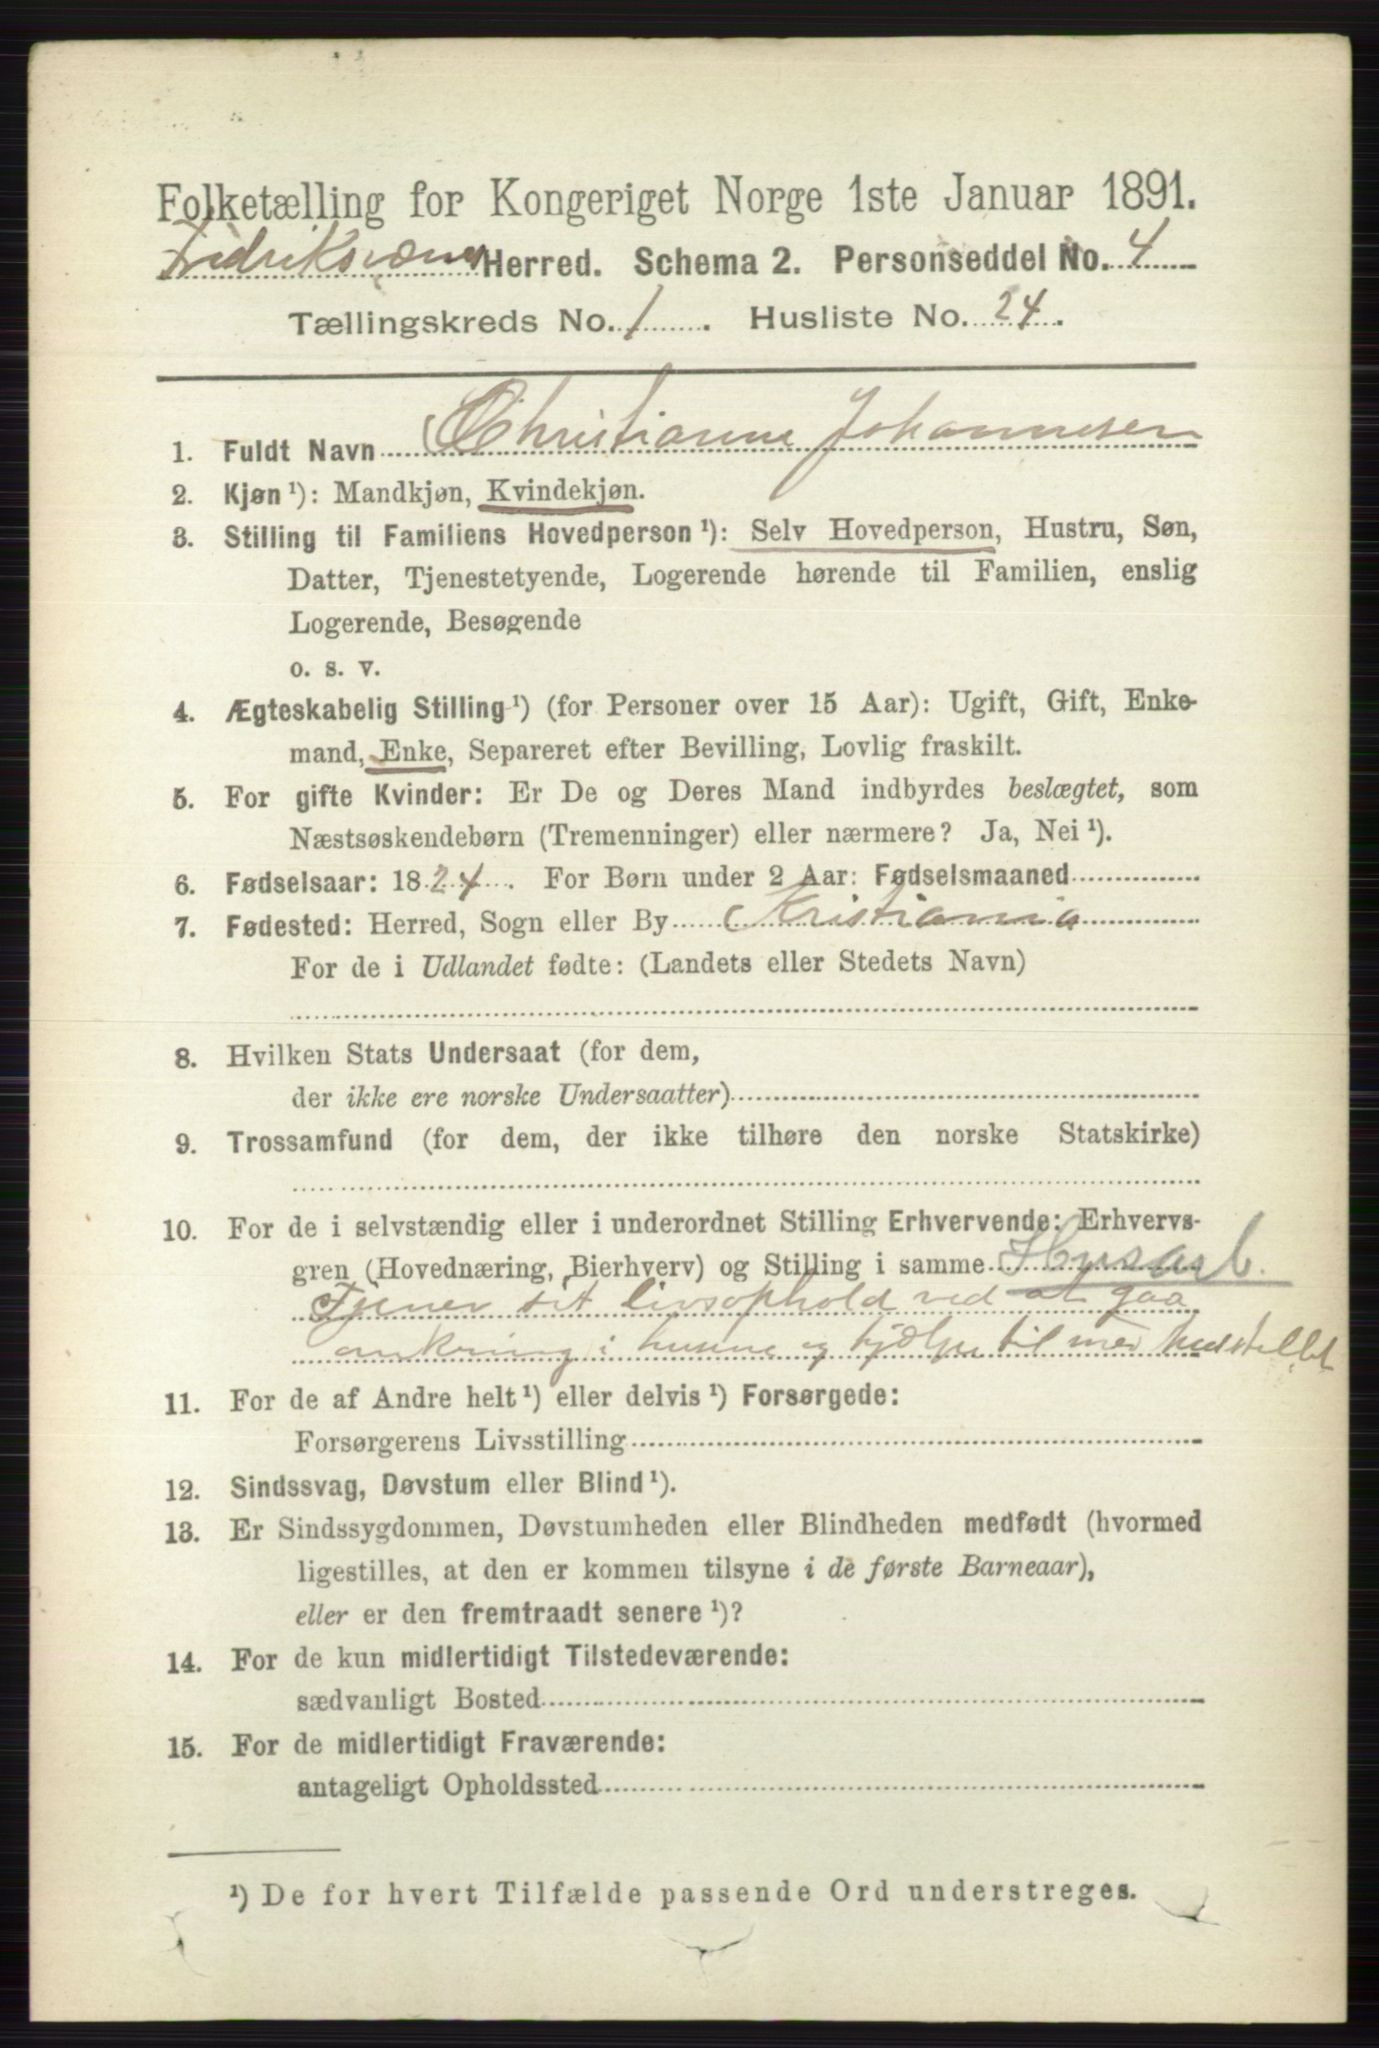 Folketælling for Kongeriget Norge 1ste Januar 1891.
Fredriksværns Herred. Schema 2. Personseddel No. 4
Tællingskreds No. 1. Husliste No. 24.
1. Fuldt Navn Christianne Johannesen
2. Kjøn ¹): Mandkjøn, Kvindekjøn.
3. Stilling til Familiens Hovedperson ¹): Selv Hovedperson, Hustru, Søn,
Datter, Tjenestetyende, Logerende hørende til Familien, enslig
Logerende, Besøgende
o. s. v.
4. Ægteskabelig Stilling ¹) (for Personer over 15 Aar): Ugift, Gift, Enke-
mand, Enke, Separeret efter Bevilling, Lovlig fraskilt.
5. For gifte Kvinder: Er De og Deres Mand indbyrdes beslægtet, som
Næstsøskendebørn (Tremenninger) eller nærmere? Ja, Nei ¹).
6. Fødselsaar: 1824. For Børn under 2 Aar: Fødselsmaaned
7. Fødested: Herred, Sogn eller By Kristiania
For de i Udlandet fødte: (Landets eller Stedets Navn)
8. Hvilken Stats Undersaat (for dem,
der ikke ere norske Undersaatter)
9. Trossamfund (for dem, der ikke tilhøre den norske Statskirke)
10. For de i selvstændig eller i underordnet Stilling Erhvervende: Erhvervs-
gren (Hovednæring, Bierhverv) og Stilling i samme Husarb.
Tjener sit livsophold ved at gaa
omkring i husene og hjælpe til med husstellet
11. For de af Andre helt ¹) eller delvis ¹) Forsørgede:
Forsørgerens Livsstilling
12. Sindssvag, Døvstum eller Blind ¹).
13. Er Sindssygdommen, Døvstumheden eller Blindheden medfødt (hvormed
ligestilles, at den er kommen tilsyne i de første Barneaar),
eller er den fremtraadt senere ¹)?
14. For de kun midlertidigt Tilstedeværende:
sædvanligt Bosted
15. For de midlertidigt Fraværende:
antageligt Opholdssted
¹) De for hvert Tilfælde passende Ord understreges.